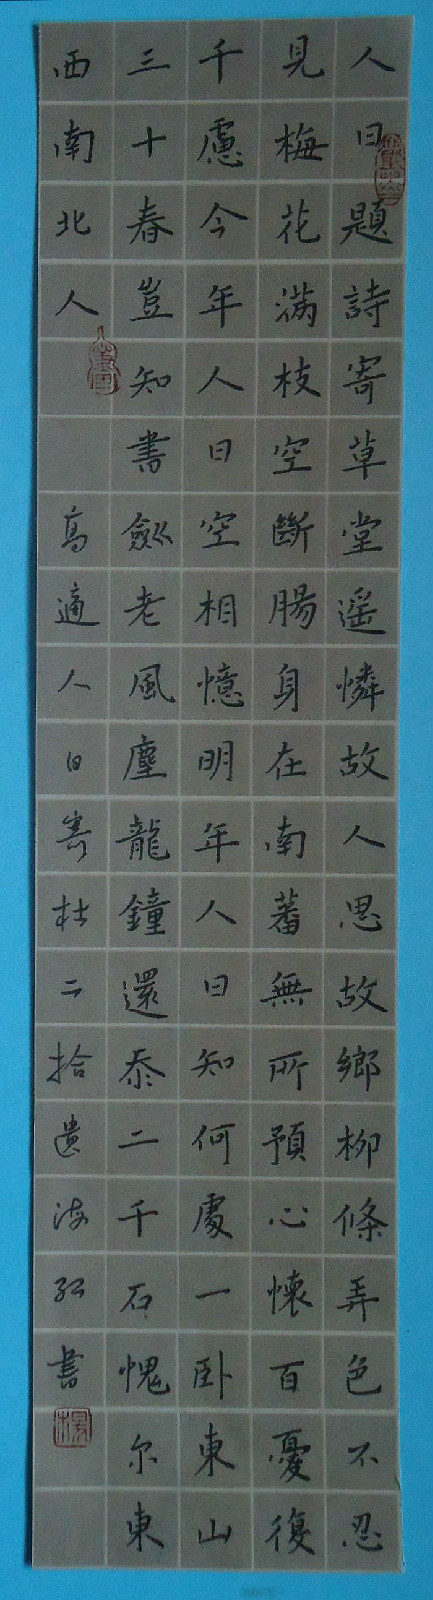 人日題詩寄草堂遥憐故人思故鄉柳條弄色不忍
見梅花滿枝空斷腸身在南蕃無所預心懷百憂復
千慮今年人日空相憶明年人日知何處一卧東山
三十春豈知書劔老風塵龍鐘還忝二千石愧尔東
西南北人 高適人日寄杜二拾遺海紅書
楊